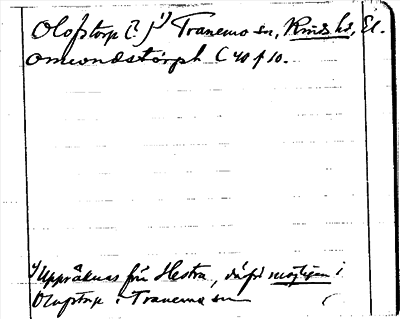 Olofstorp (?)¹⁾ Tranemo sn, Kinds hd, El.
omundstörph C 40 f 10.
¹⁾ Uppräknas för Hestra, därför möjligen i
Olofstorp i Tranemo sn